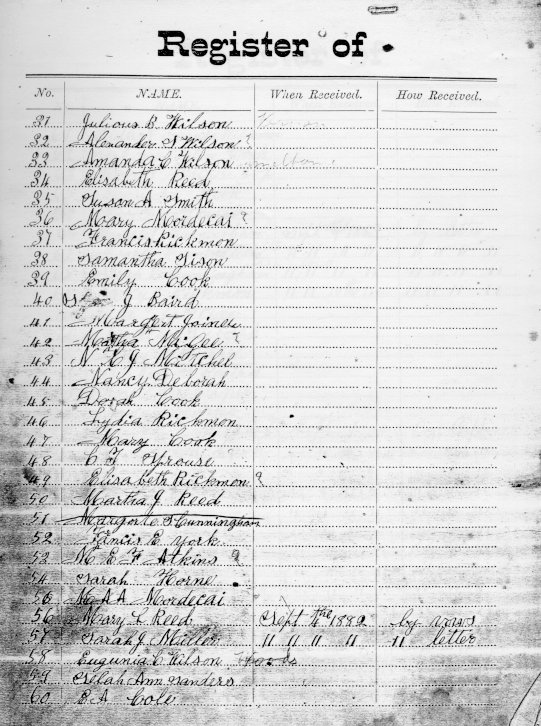 Register of
No. NAME. When Received. How Received.
31 Julious B Wilson
32 Alexander S Wilson ?
33 Amanda C Wilson
34 Elisabeth Reed
35 Susan A Smith
36 Mary Mordecai ?
37 Francis Rickmon
38 Samantha Sison
39 Emily Cook
40 J Baird
41 Margert Joines
42 Martha McGee ?
43 N E J Mitchel
44 Nancy Deborah
45 Dorah Cook
46 Lydia Rickmon
47 Mary Cook
48 C F Sprouse
49 Elisabeth Rickmon ?
50 Martha J Reed
51 Marjorie S Cunningham
52 Francis E York
53 M E F Atkins ?
54 Sarah Horne
55 M A A Mordecai
56 Mary L Reed Sept 4the 1882 by vows
57 Sarah J Miller " " " " " letter
58 Eugunia C Wilson Woods
59 Selah Ann Sanders
60 B A Cole